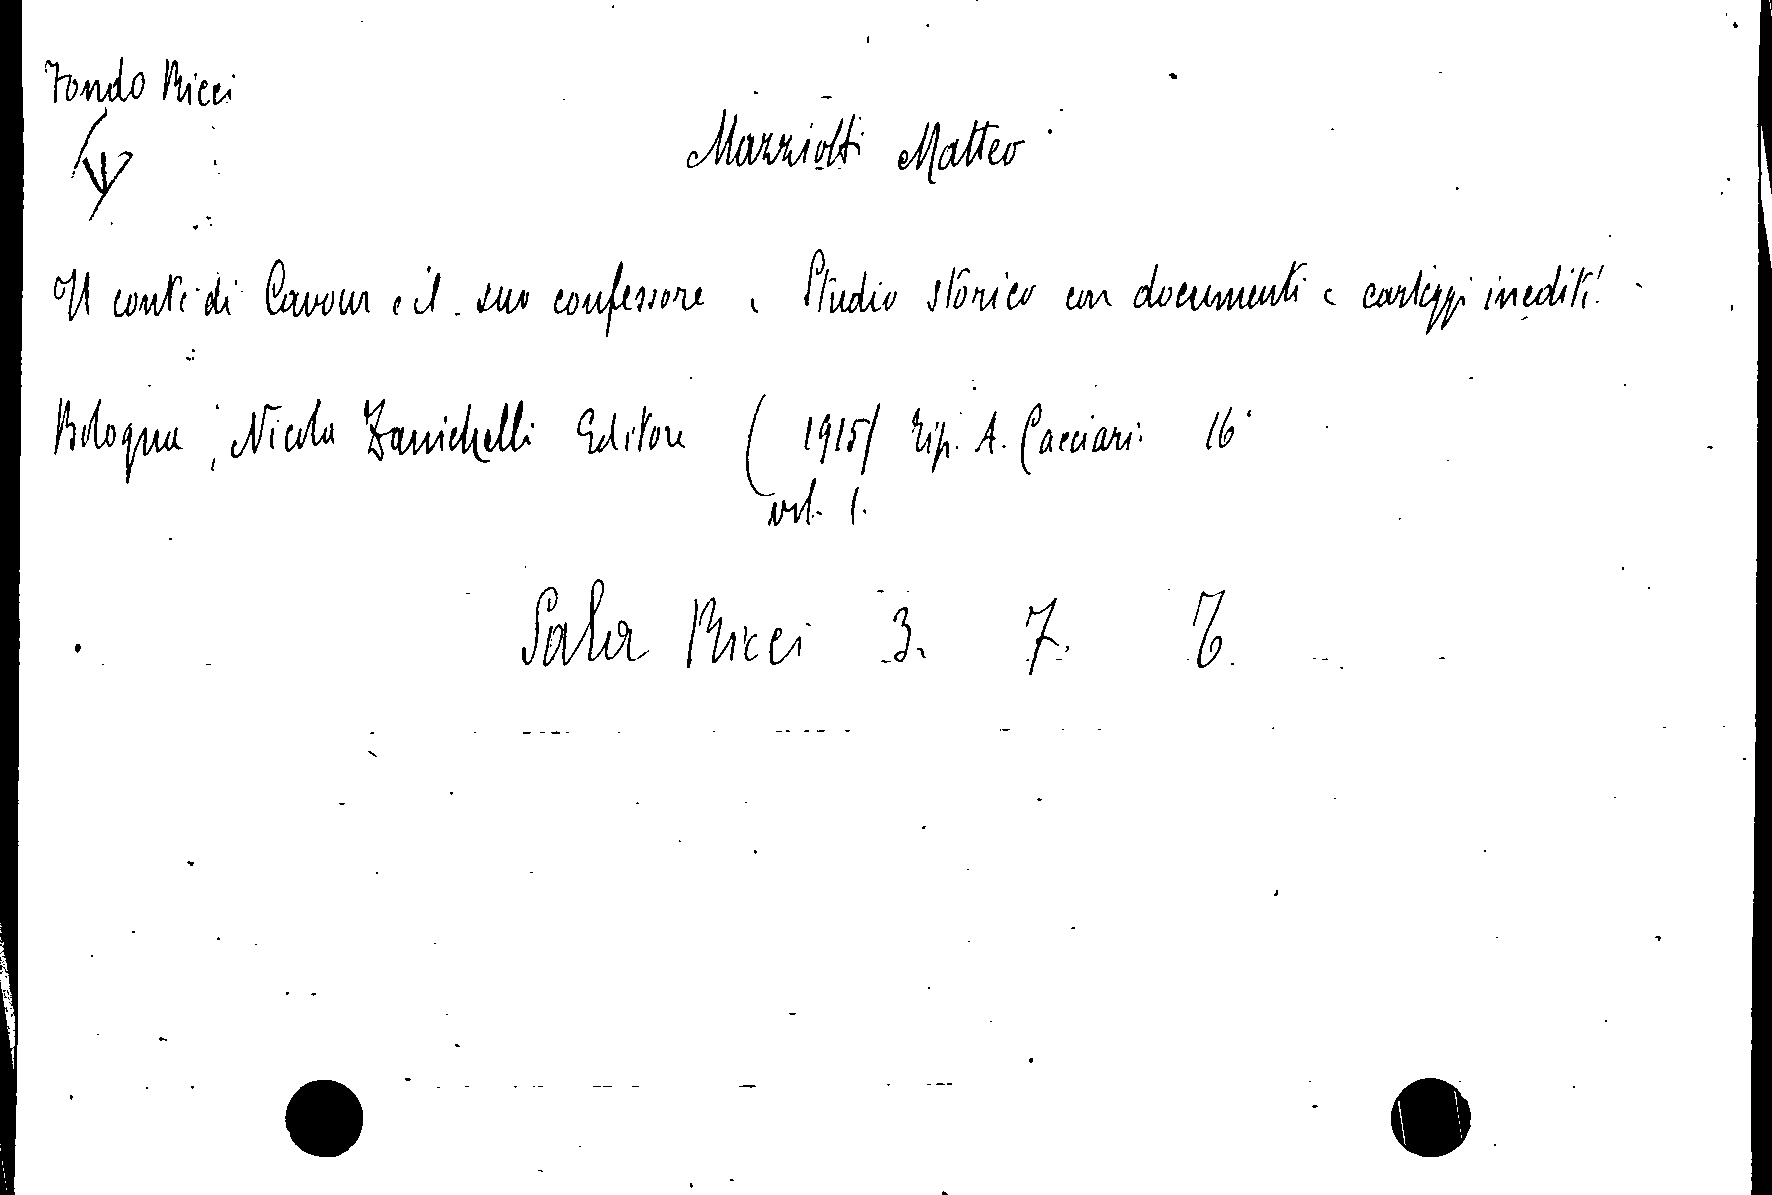 Fondo Ricci
Mazziotti Matteo
Il conte di Cavour e il suo confessore. Studio storico con documenti e carteggi inediti.
Bologna, Nicola Zanichelli Editore (1915) Tip. A. Cacciari. 16°
vol. 1.
Sala Ricci 3. 7.